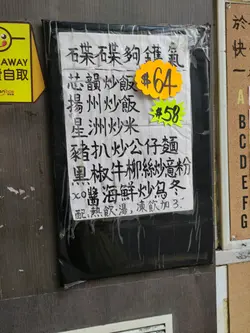 碟碟夠鑊氣
芯韻炒飯
揚州炒飯
星洲炒米
豬扒炒公仔麵
黑椒牛柳絲炒意粉
XO醬海鮮炒烏冬
配:熱飲/湯,凍飲加3.-
$64
$58
AWAY
自取
於
快
一
A
B
C
D
E
F
G